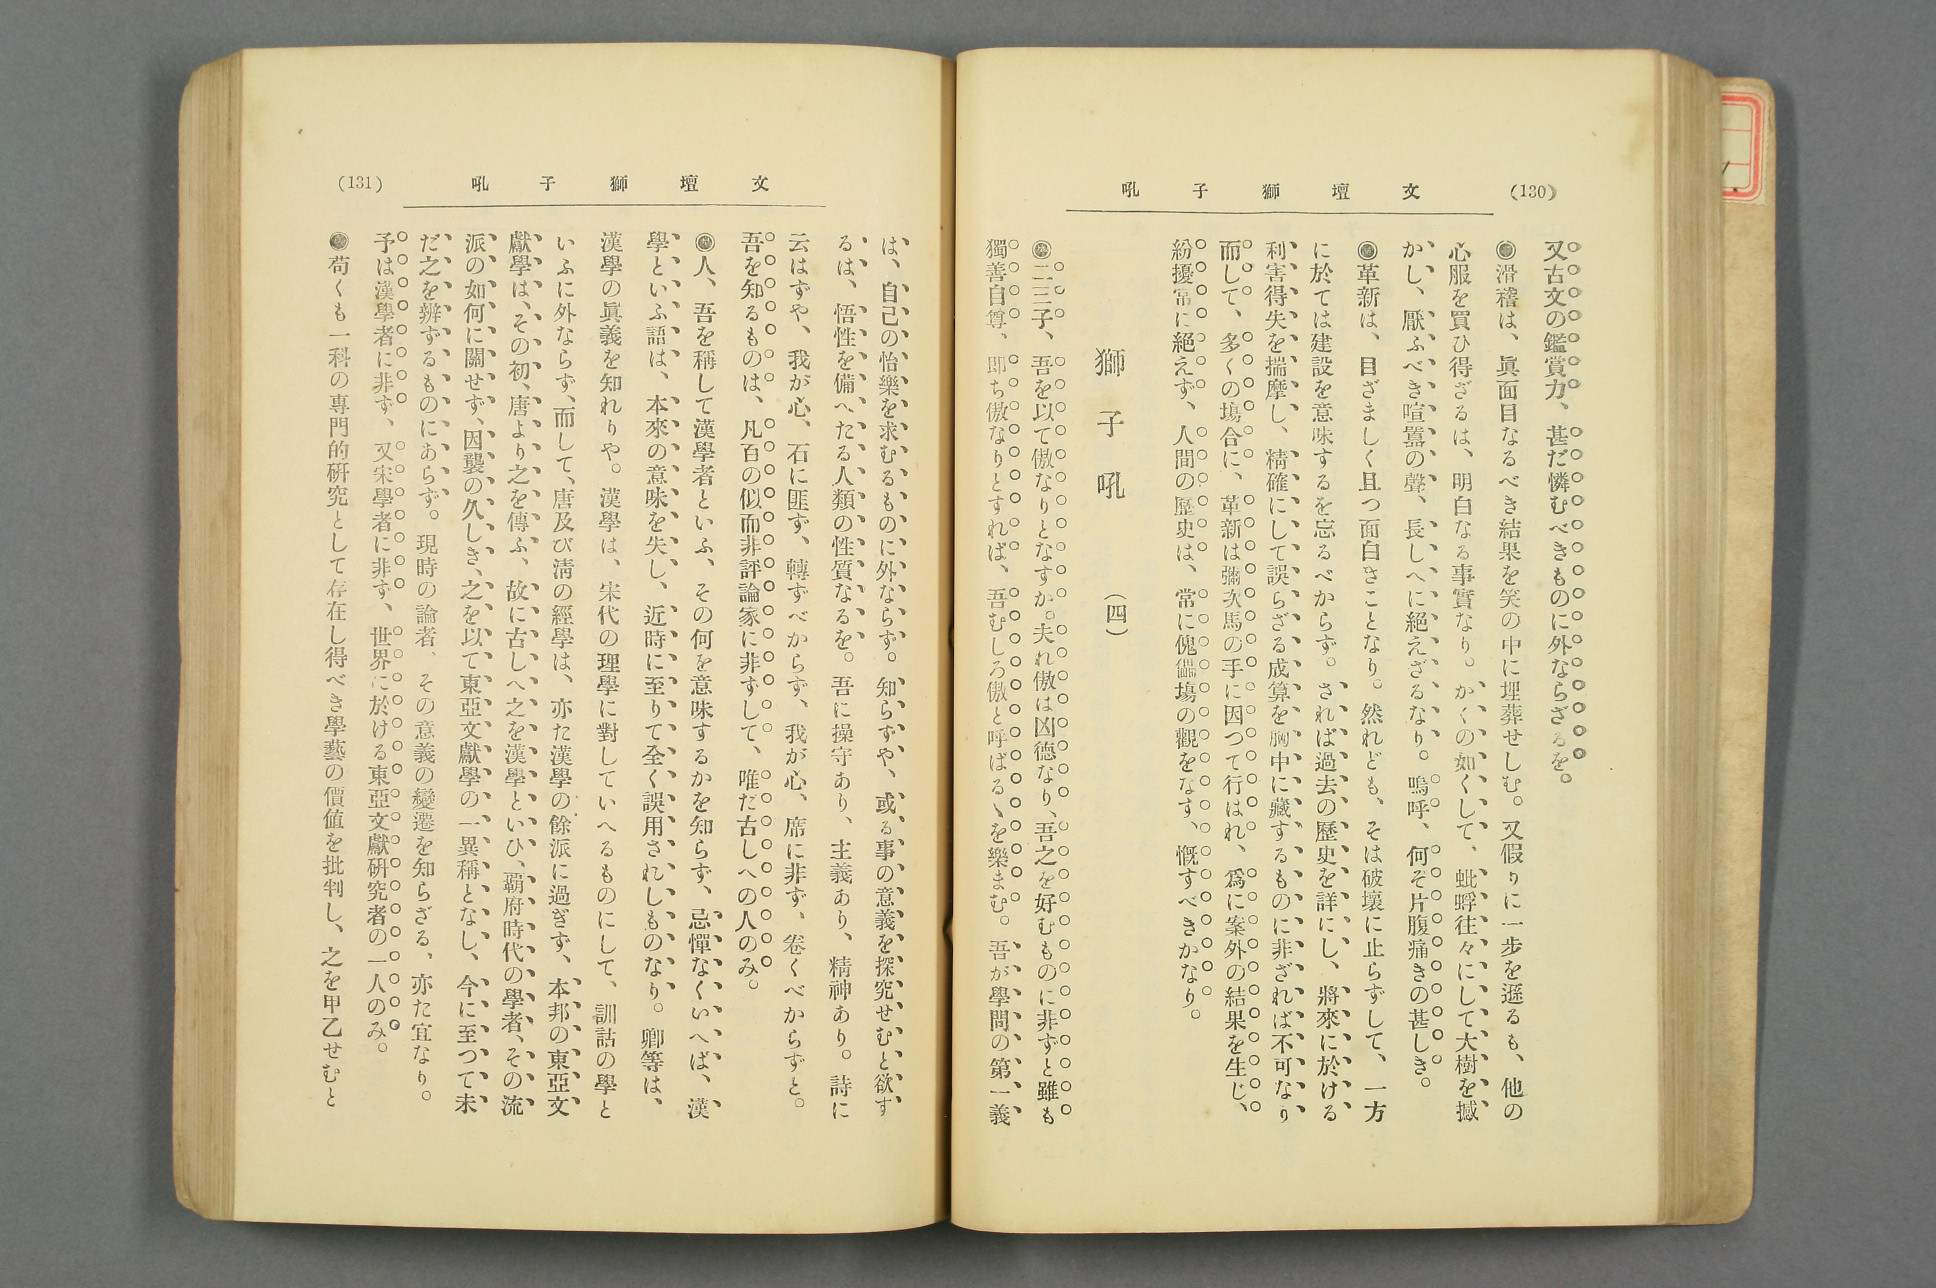 (130)
文壇獅子吼
又古文の鑑賞力、甚だ憐むべきものに外ならざるを。
◉滑稽は、眞面目なるべき結果を笑の中に埋葬せしむ。又假りに一步を遜るも、他の
心服を買ひ得ざるは、明白なる事實なり。かくの如くして、蚍蜉往々にして大樹を撼
かし、厭ふべき喧囂の聲、長しへに絕えざるなり。嗚呼、何ぞ片腹痛きの甚しき。
◉革新は、目ざましく且つ面白きことなり。然れども、そは破壞に止らずして、一方
に於ては建設を意味するを忘るべからず。されば過去の歷史を詳にし、將來に於ける
利害得失を揣摩し、精確にして誤らざる成算を胸中に藏するものに非ざれば不可なり
而して、多くの塲合に、革新は彌次馬の手に因つて行はれ、爲に案外の結果を生じ、
紛擾常に絕えず、人間の歷史は、常に傀儡塲の觀をなす、慨すべきかなり。
獅子吼(四)
◉二三子、吾を以て傲なりとなすか。夫れ傲は凶德なり、吾之を好むものに非ずと雖も
獨善自尊、即ち傲なりとすれば、吾むしろ傲と呼ばるゝを樂まむ。吾が學問の第一義
文壇獅子吼
(131)
は、自己の怡樂を求むるものに外ならず。知らずや、或る事の意義を探究せむと欲す
るは、悟性を備へたる人類の性質なるを。吾に操守あり、主義あり、精神あり。詩に
云はずや、我が心、石に匪ず、轉ずべからず、我が心、席に非ず、卷くべからずと。
吾を知るものは、凡百の似而非評論家に非ずして、唯だ古しへの人のみ。
◉人、吾を稱して漢學者といふ、その何を意味するかを知らず、忌憚なくいへば、漢
學といふ語は、本來の意味を失し、近時に至りて全く誤用されしものなり。卿等は、
漢學の眞義を知れりや。漢學は、宋代の理學に對していへるものにして、訓詁の學と
いふに外ならず、而して、唐及び淸の經學は、亦た漢學の餘派に過ぎず、本邦の東亞文
獻學は、その初、唐より之を傳ふ、故に古しへ之を漢學といひ、覇府時代の學者、その流
派の如何に關せず、因襲の久しき、之を以て東亞文獻學の一異稱となし、今に至つて未
だ之を辨ずるものにあらず。現時の論者、その意義の變遷を知らざる、亦た宜なり。
予は漢學者に非ず、又宋學者に非ず、世界に於ける東亞文獻硏究者の一人のみ。
◉苟くも一科の專門的硏究として存在し得べき學藝の價値を批判し、之を甲乙せむと